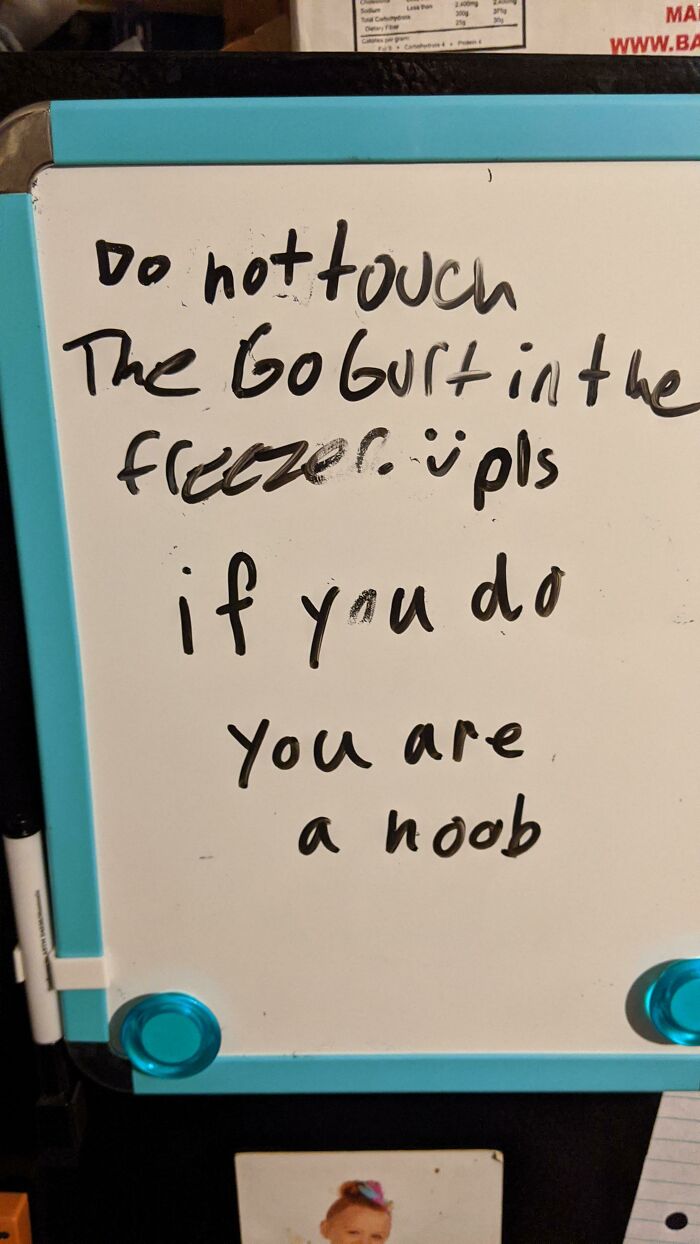 Sodium Less than 2,400mg 2,400mg
Total Carbohydrate 300g 375g
Dietary Fiber 25g 30g
Calories per gram:
Carbohydrate 4 • Protein 4
MA
WWW.BA
Do not touch
The GoGurt in the
freezer. ü pls
if you do
you are
a noob